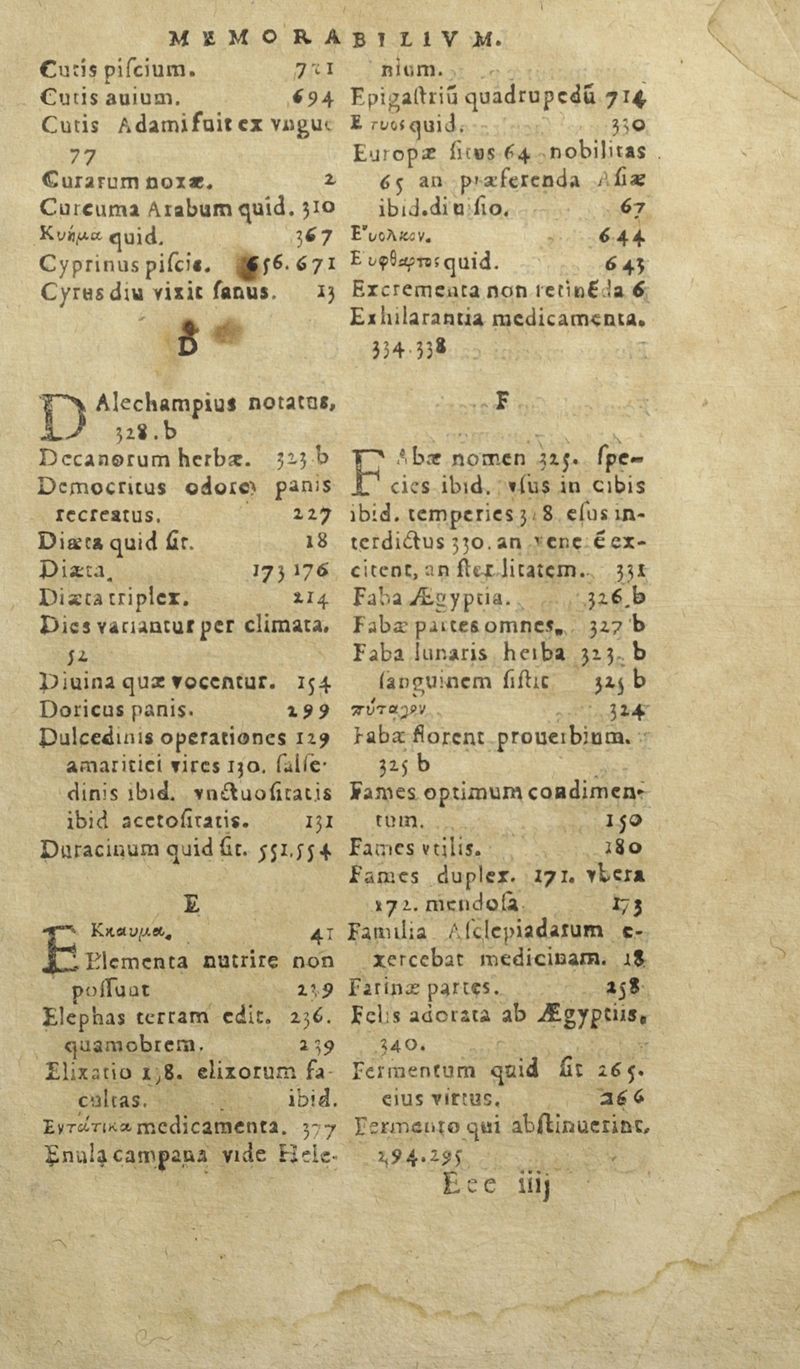 MEMORABILIVM.
Cutis piſcium. 711
Cutis auium. 694
Cutis Adami fuit ex vngui
77
Curarum noxæ. 2
Curcuma Arabum quid. 310
Κνήμα quid. 367
Cyprinus piſcis. 656. 671
Cyrus diu vixit ſanus. 13
D
DAlechampius notatus,
328.b
Decanorum herbæ. 323 b
Democritus odore panis
recreatus. 227
Diæta quid ſit. 18
Diæta. 173 176
Diæta triplex. 214
Dies variantur per climata.
52
Diuina quæ vocentur. 154
Doricus panis. 299
Dulcedinis operationes 129
amaritiei vires 130. ſalſe-
dinis ibid. vnctuoſitatis
ibid acetoſitatis. 131
Duracinum quid ſit. 551.554
E
EΚκαυμα. 41
Elementa nutrire non
poſſunt 239
Elephas terram edit. 236.
quamobrem. 239
Elixatio 178. elixorum fa-
cultas. ibid.
Εντάτικα medicamenta. 377
Enula campana vide Hele-
nium.
Epigaſtriū quadrupedū 714
quid. 330
Europæ ſitus 64 nobilitas
65 an præferenda Aſiæ
ibid. diuiſio. 67
644
quid. 643
Excrementa non retinēda 6
Exhilarantia medicamenta.
334.338
F
FAbæ nomen 325. ſpe-
cies ibid. vſus in cibis
ibid. temperies 328 eſus in-
terdictus 330. an venerē ex-
citent, an ſterilitatem. 331
Faba Ægyptia. 326.b
Fabæ partes omnes. 327 b
Faba lunaris herba 323. b
ſanguinem ſiſtit 325 b
324
Fabæ florent prouerbium.
325 b
Fames optimum condimen-
tum. 150
Fames vtilis. 180
Fames duplex. 171. vera
172. mendoſa 173
Familia Aſclepiadarum e-
xercebat medicinam. 18
Farinæ partes. 258
Felis adorata ab Ægyptiis,
340.
Fermentum quid ſit 265.
eius virtus. 266
Fermento qui abſtinuerint,
294.295
Eee iiij